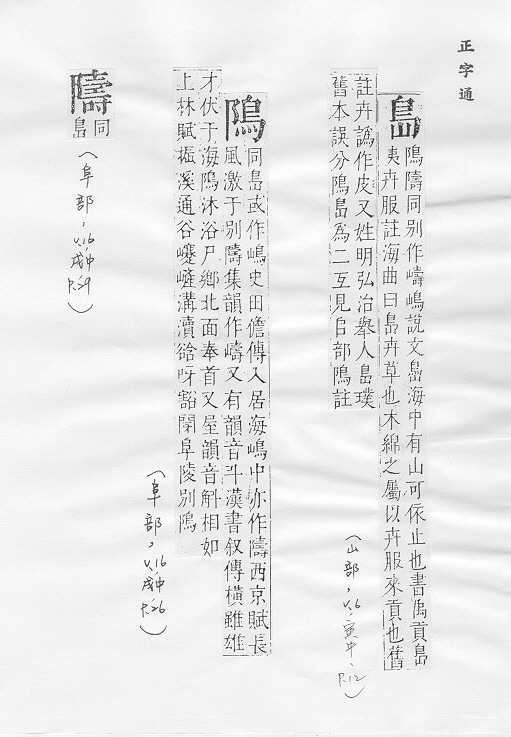 正字通
島
隝隯同別作嶹嶋說文島海中有山可依止也書禹貢島
夷卉服註海曲曰島卉草也木綿之屬以卉服來貢也舊
註卉譌作皮又姓明弘治舉人島璞
舊本誤分隝島爲二互見𨸏部隝註
(山部,v.16,寅中、P.12)
隝
同島或作嶋史田儋傳入居海嶋中亦作隯西京賦長
風激于別隯集韻作嶹又有韻音斗漢書叙傳橫雖雄
才伏于海隝沐浴尸鄉北面奉首又屋韻音斛相如
上林賦振溪通谷蹇嵼溝瀆谽呀豁閜阜陵別隝
(阜部,v.16戌中P.26)
隯
同島
(阜部,v.16戌中P.29)